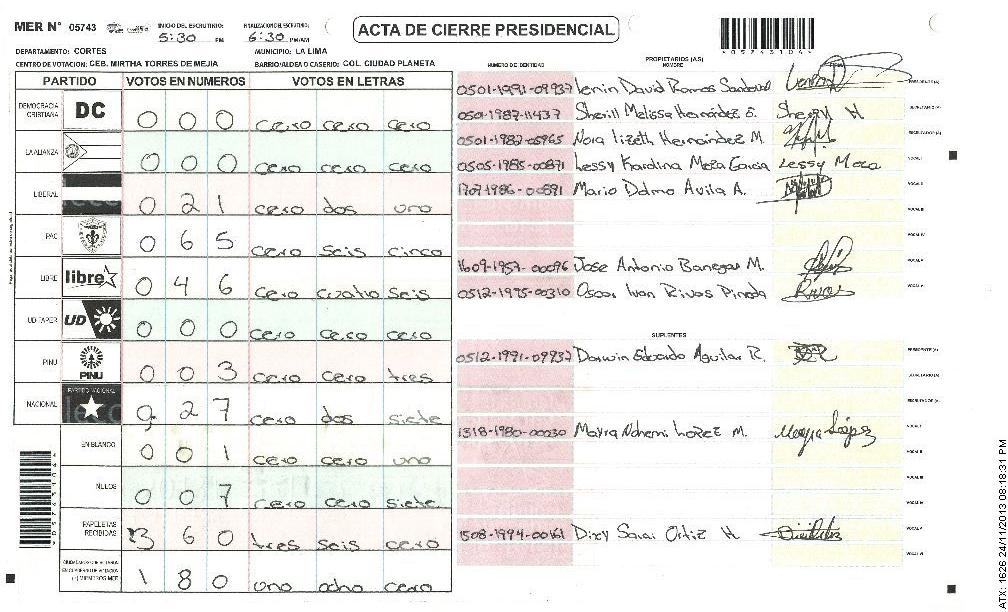 MER N° 05743
INICIO DEL ESCRUTINIO: 5:30 PM
FINALIZACION DEL ESCRUTINIO: 6:30 PM/AM
ACTA DE CIERRE PRESIDENCIAL
0 5 7 4 3 1 0 4
DEPARTAMENTO: CORTES
MUNICIPIO: LA LIMA
CENTRO DE VOTACION: CEB. MIRTHA TORRES DE MEJIA
BARRIO/ALDEA O CASERIO: COL. CIUDAD PLANETA
PARTIDO VOTOS EN NUMEROS VOTOS EN LETRAS
DEMOCRACIA CRISTIANA DC 0 0 0 cero cero cero
LA ALIANZA 0 0 0 cero cero cero
LIBERAL 0 2 1 cero dos uno
PAC 0 6 5 cero seis cinco
LIBRE libre 0 4 6 cero cuatro seis
UD FAPER UD 0 0 0 cero cero cero
PINU PINU 0 0 3 cero cero tres
NACIONAL PARTIDO NACIONAL 0 2 7 cero dos siete
EN BLANCO 0 0 1 cero cero uno
NULOS 0 0 7 cero cero siete
PAPELETAS RECIBIDAS 3 6 0 tres seis cero
(+) MIEMBROS MER 1 8 0 uno ocho cero
NUMERO DE IDENTIDAD
PROPIETARIOS (AS)
NOMBRE
0501-1991-09937 Lenin David Ramos Sandoval PRESIDENTE (A)
0501-1987-11437 Sherill Melissa Hernández S. Sherill H SECRETARIO (A)
0501-1982-05965 Nora Lizeth Hernandez M. ESCRUTADOR (A)
0505-1985-00871 Lessy Karolina Meza Garcia Lessy Meza VOCAL I
1707-1986-00891 Mario Delmo Avila A. VOCAL II
VOCAL III
VOCAL IV
1609-1957-00096 Jose Antonio Banegas M. VOCAL V
0512-1975-00310 Oscar Ivan Rivas Pineda Rivas VOCAL VI
SUPLENTES
0512-1991-09937 Darwin Edgardo Aguilar R. PRESIDENTE (A)
SECRETARIO (A)
ESCRUTADOR (A)
1318-1980-00030 Mayra Nohemi Lopez M. Mayra López VOCAL I
VOCAL II
VOCAL III
VOCAL IV
1508-1994-00161 Dixy Sarai Ortiz H. VOCAL V
VOCAL VI
0 5 7 4 3 1 0 4
ATX: 1626 24/11/2013 08:18:31 PM